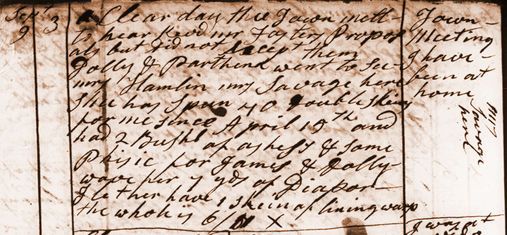 Sept
9 3
a Clear day the Town mett
to hear Revd mr Fosters Propos
als but did not Except them
Dolly & Parthena went to See
mrs Hamlin mrs Savage here
Shee has Spun 40 Double Skeins
for me Since April 15th and
had 2 Bushl of ashes & Some
Phisic for James & Dolly
wove her 7 yds of Diaper
I let her have 1 skein of lining warp
the whole is 6/ X
Town
Meeting
I have
been at
home
mrs
Savage
here
I was at